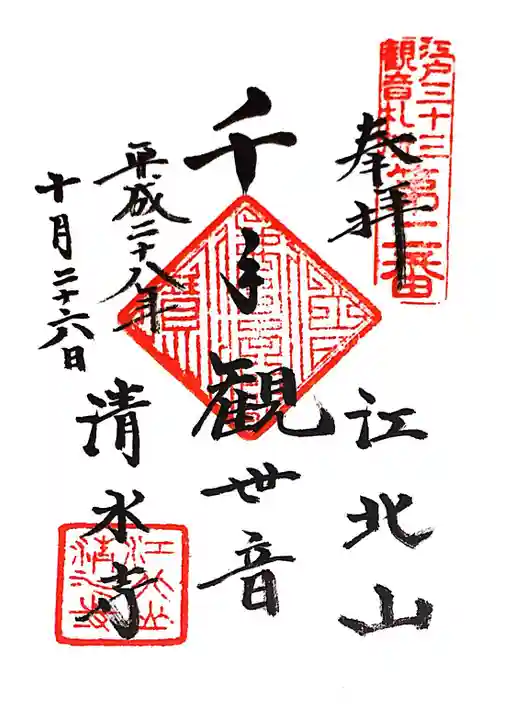 江戸三十三
観音札所
第二番
奉拝
江北山
千手観世音
平成二十八年
十月二十六日
清水寺